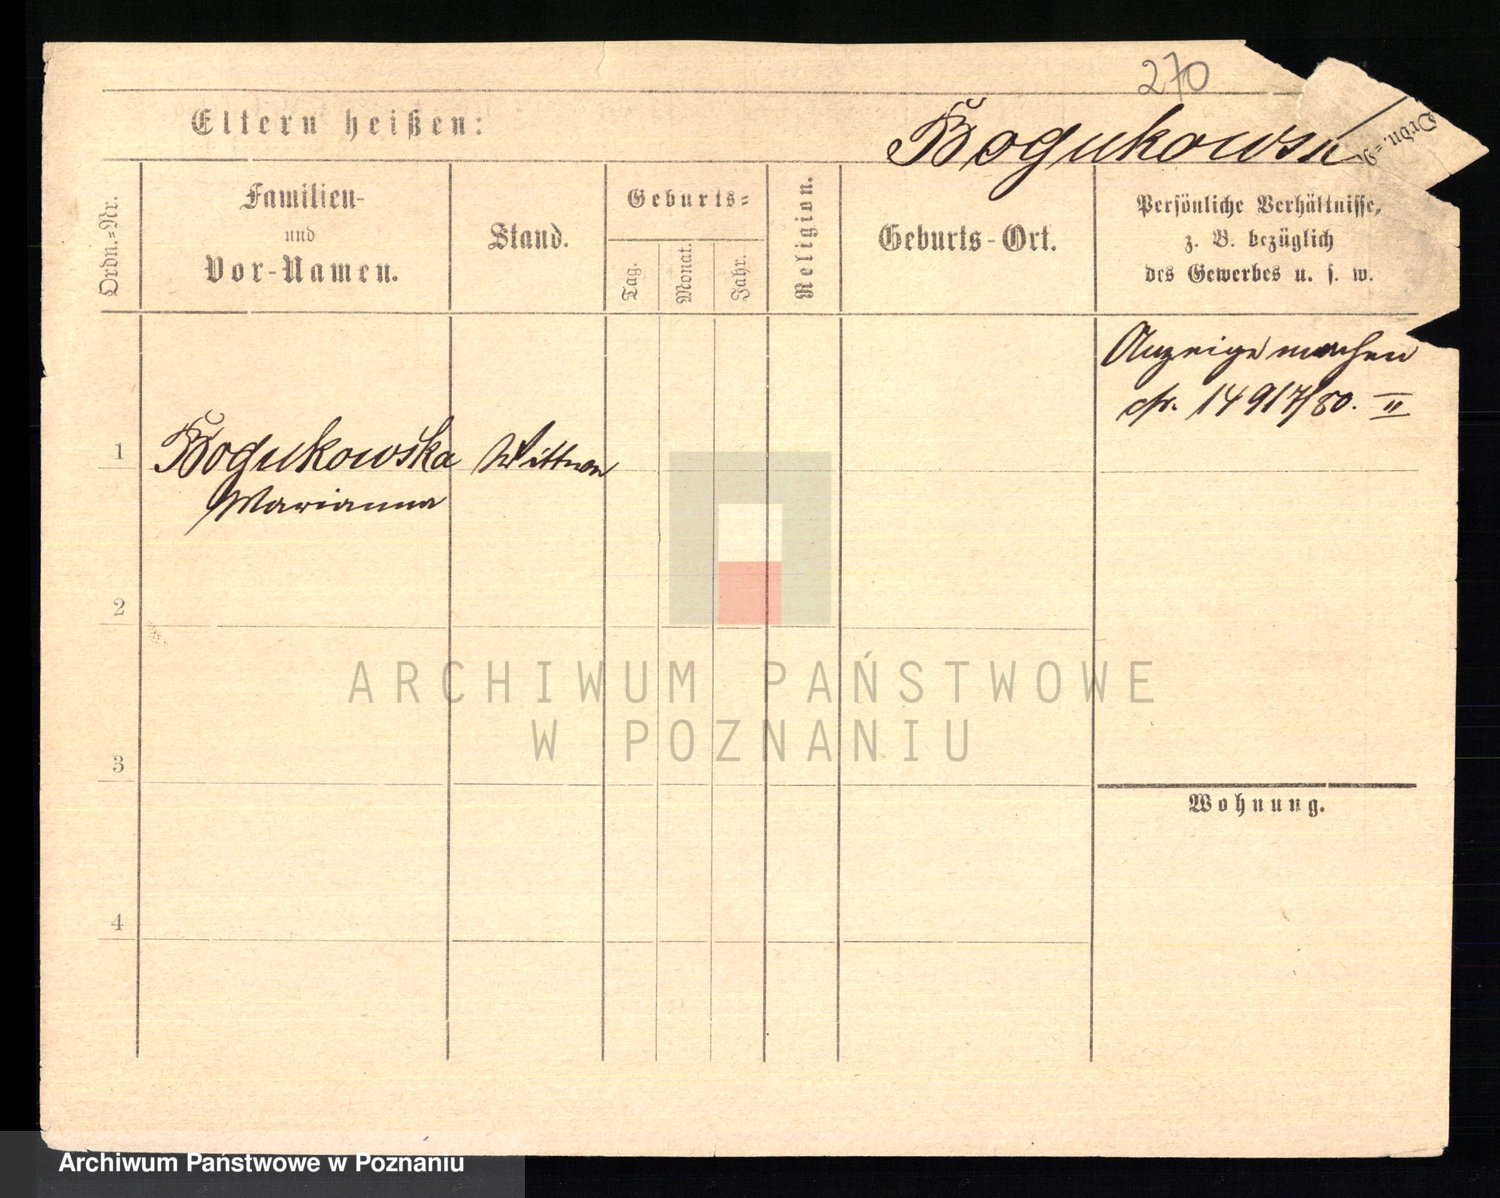 270
Eltern heißen:
Bogukowska
Ordn.=
Ordn.=Nr.
Familien-
und
Vor-Namen.
Stand.
Geburts=
Tag.
Monat.
Jahr.
Religion.
Geburts-Ort.
Persönliche Verhältnisse,
z. B. bezüglich
des Gewerbes u. s. w.
Anzeige machen
cfr. 14917/80. II
1
Bogukowska
Marianna
Wittwe
2
ARCHIWUM PAŃSTWOWE
W POZNANIU
3
Wohnung.
4
Archiwum Państwowe w Poznaniu